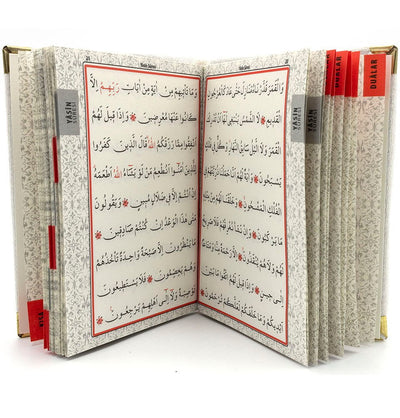 وَالْقَمَرَ قَدَّرْنَاهُ مَنَازِلَ حَتّٰى عَادَ كَالْعُرْجُونِ
الْقَدِيمِ ❋ لَا الشَّمْسُ يَنْبَغِي لَهَا اَنْ تُدْرِكَ
الْقَمَرَ وَلَا الَّيْلُ سَابِقُ النَّهَارِ وَكُلٌّ فِي فَلَكٍ
يَسْبَحُونَ ❋ وَاٰيَةٌ لَهُمْ اَنَّا حَمَلْنَا ذُرِّيَّتَهُمْ فِي
الْفُلْكِ الْمَشْحُونِ ❋ وَخَلَقْنَا لَهُمْ مِنْ مِثْلِهِ
مَا يَرْكَبُونَ ❋ وَاِنْ نَشَأْ نُغْرِقْهُمْ فَلَا صَرِيخَ
لَهُمْ وَلَا هُمْ يُنْقَذُونَ ❋ اِلَّا رَحْمَةً مِنَّا وَمَتَاعًا
اِلٰى حِينٍ ❋ وَاِذَا قِيلَ لَهُمُ اتَّقُوا مَا بَيْنَ
اَيْدِيكُمْ وَمَا خَلْفَكُمْ لَعَلَّكُمْ تُرْحَمُونَ
وَمَا تَأْتِيهِمْ مِنْ اٰيَةٍ مِنْ اٰيَاتِ رَبِّهِمْ اِلَّا
كَانُوا عَنْهَا مُعْرِضِينَ ❋ وَاِذَا قِيلَ لَهُمْ
اَنْفِقُوا مِمَّا رَزَقَكُمُ اللهُ قَالَ الَّذِينَ كَفَرُوا
لِلَّذِينَ اٰمَنُوا اَنُطْعِمُ مَنْ لَوْ يَشَاءُ اللهُ اَطْعَمَهُ
اِنْ اَنْتُمْ اِلَّا فِي ضَلَالٍ مُبِينٍ ❋ وَيَقُولُونَ
مَتٰى هٰذَا الْوَعْدُ اِنْ كُنْتُمْ صَادِقِينَ ❋
مَا يَنْظُرُونَ اِلَّا صَيْحَةً وَاحِدَةً تَأْخُذُهُمْ
وَهُمْ يَخِصِّمُونَ ❋ فَلَا يَسْتَطِيعُونَ
تَوْصِيَةً وَلَا اِلٰى اَهْلِهِمْ يَرْجِعُونَ ❋
YASİN
YASİN
YASİN
DUALAR
DUALAR